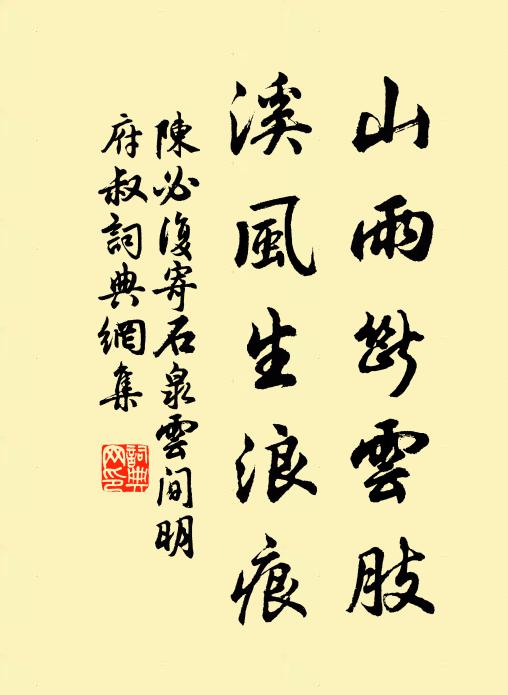 山雨斷雲肢
溪風生浪痕
陳必復寄石泉雲间明
府叔詞典網集
詞典网印